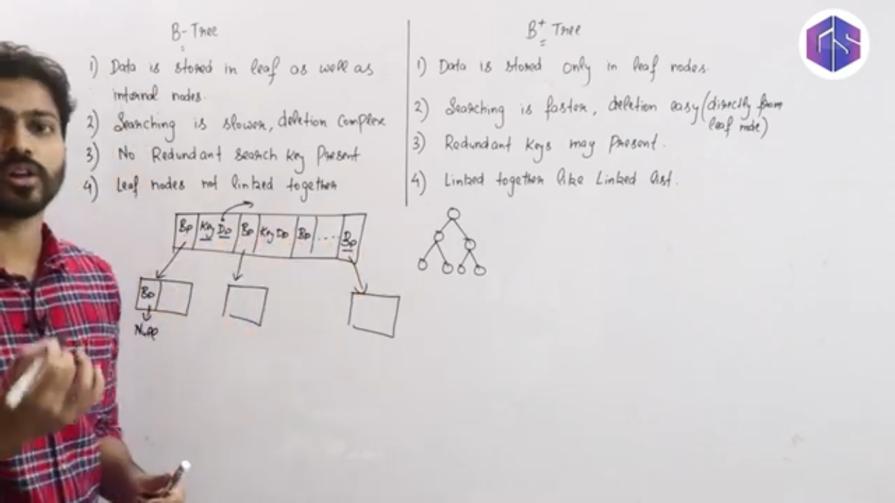 B-Tree
1) Data is stored in leaf as well as
internal nodes.
2) Searching is slower, deletion complex
3) No Redundant search key present
4) Leaf nodes not linked together
B+ Tree
1) Data is stored only in leaf nodes.
2) Searching is faster, deletion easy (directly from
leaf node)
3) Redundant keys may present.
4) Linked together like linked list.
Bp Key Dp Bp Key Dp Bp ..... Bp
Bp
Null
GS